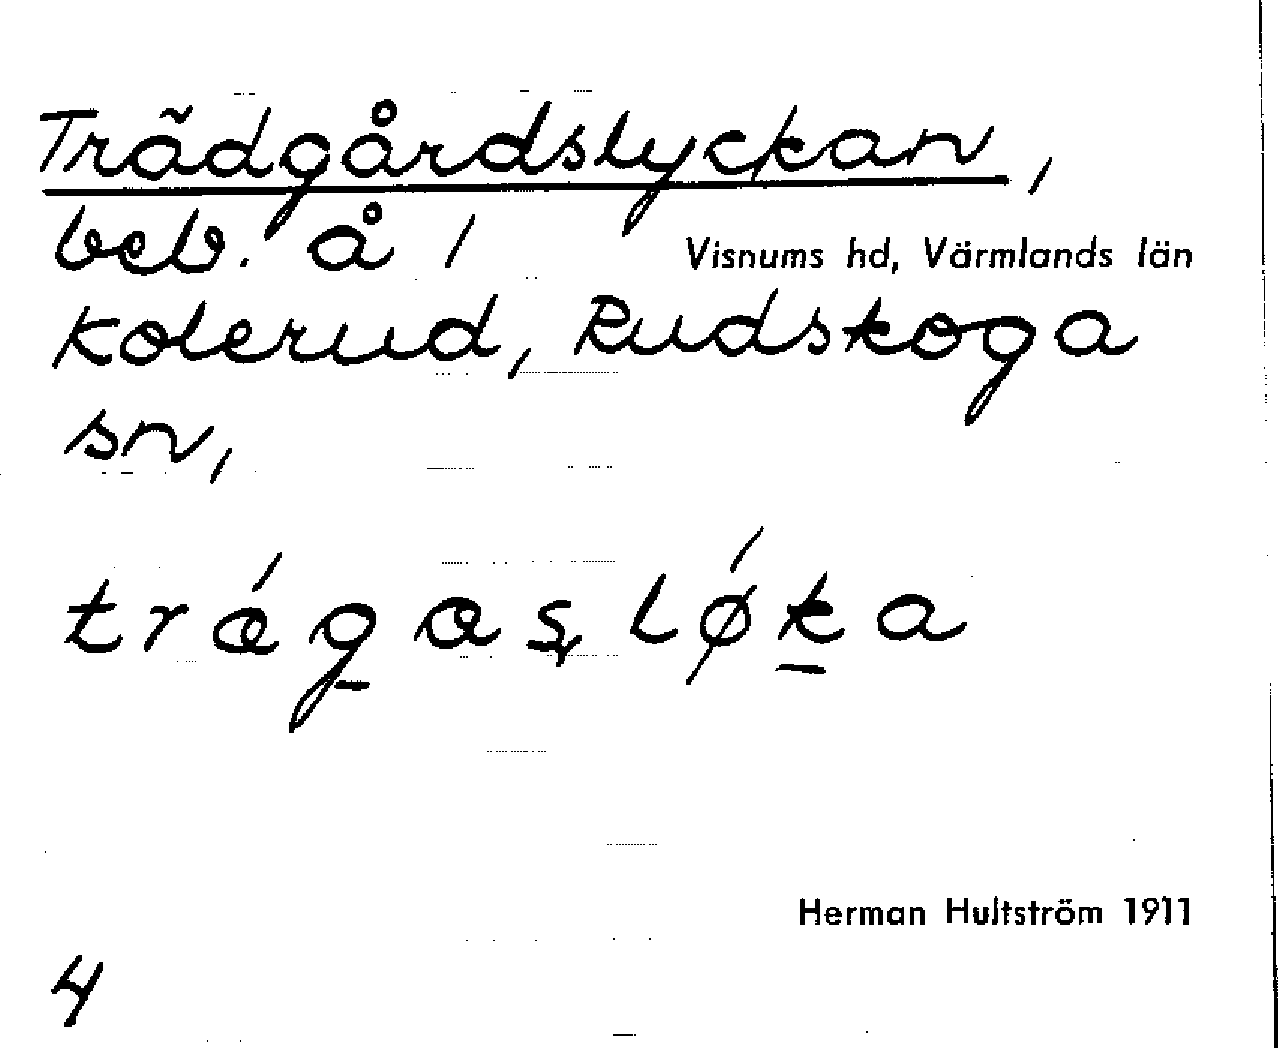 Trädgårdslyckan,
beb. å /
Visnums hd, Värmlands län
Kolerud, Rudskoga
sn,
trágaşlǿka
Herman Hultström 1911
4